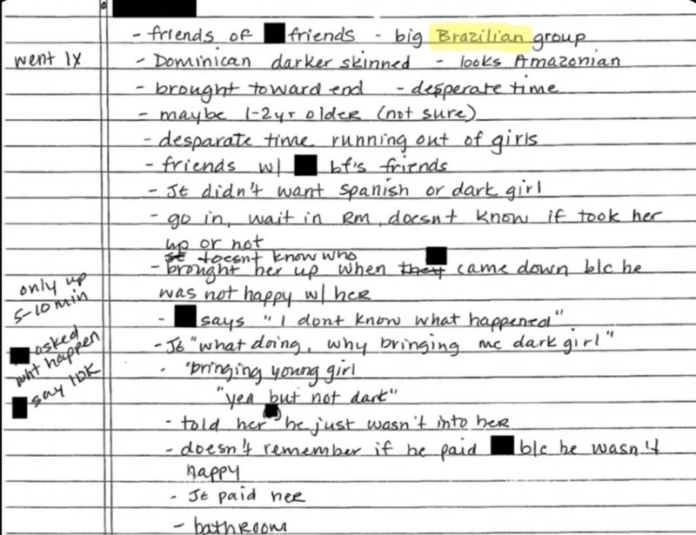 - friends of friends - big Brazilian group
went 1x
- Dominican darker skinned - looks Amazonian
- brought toward end - desperate time
- maybe 1-2yr older (not sure)
- desparate time running out of girls
- friends w/ bf's friends
- JE didn't want spanish or dark girl
- go in, wait in RM, doesnt know if took her
up or not
doesnt know who
- brought her up when they came down b/c he
was not happy w/ her
only up
5-10 min
- says "I dont know what happened"
asked
wht happen
say IDK
- JE "what doing, why bringing me dark girl"
- "bringing young girl
"yea but not dark"
- told her he just wasn't into her
- doesn't remember if he paid b/c he wasn't
happy
- JE paid her
- bathroom